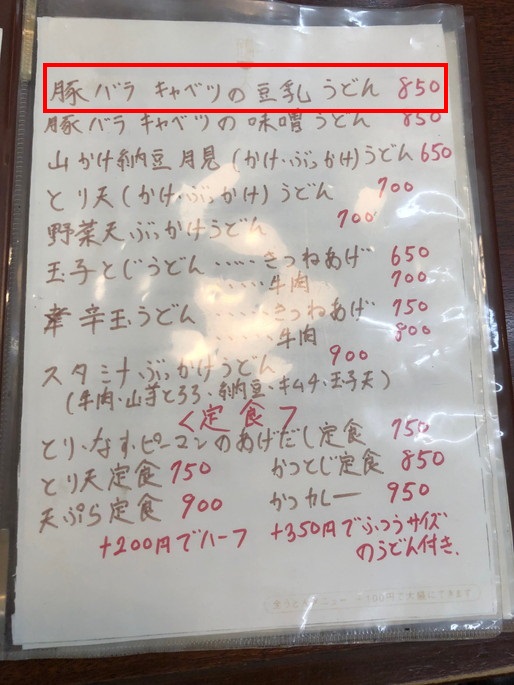 豚バラ キャベツの豆乳うどん 850
豚バラ キャベツの味噌うどん 850
山かけ納豆月見(かけ・ぶっかけ)うどん 650
とり天(かけ・ぶっかけ)うどん 700
野菜天ぶっかけうどん 700
玉子とじうどん……きつねあげ 650
……牛肉 700
辛玉うどん……きつねあげ 750
……牛肉 800
スタミナぶっかけうどん 900
(牛肉・山芋とろろ・納豆・キムチ・玉子天)
<定食>
とり・なす・ピーマンのあげだし定食 750
とり天定食 750 かつとじ定食 850
天ぷら定食 900 かつカレー 950
+200円でハーフ +350円でふつうサイズ
のうどん付き.
全うどんメニュー +100円で大盛にできます